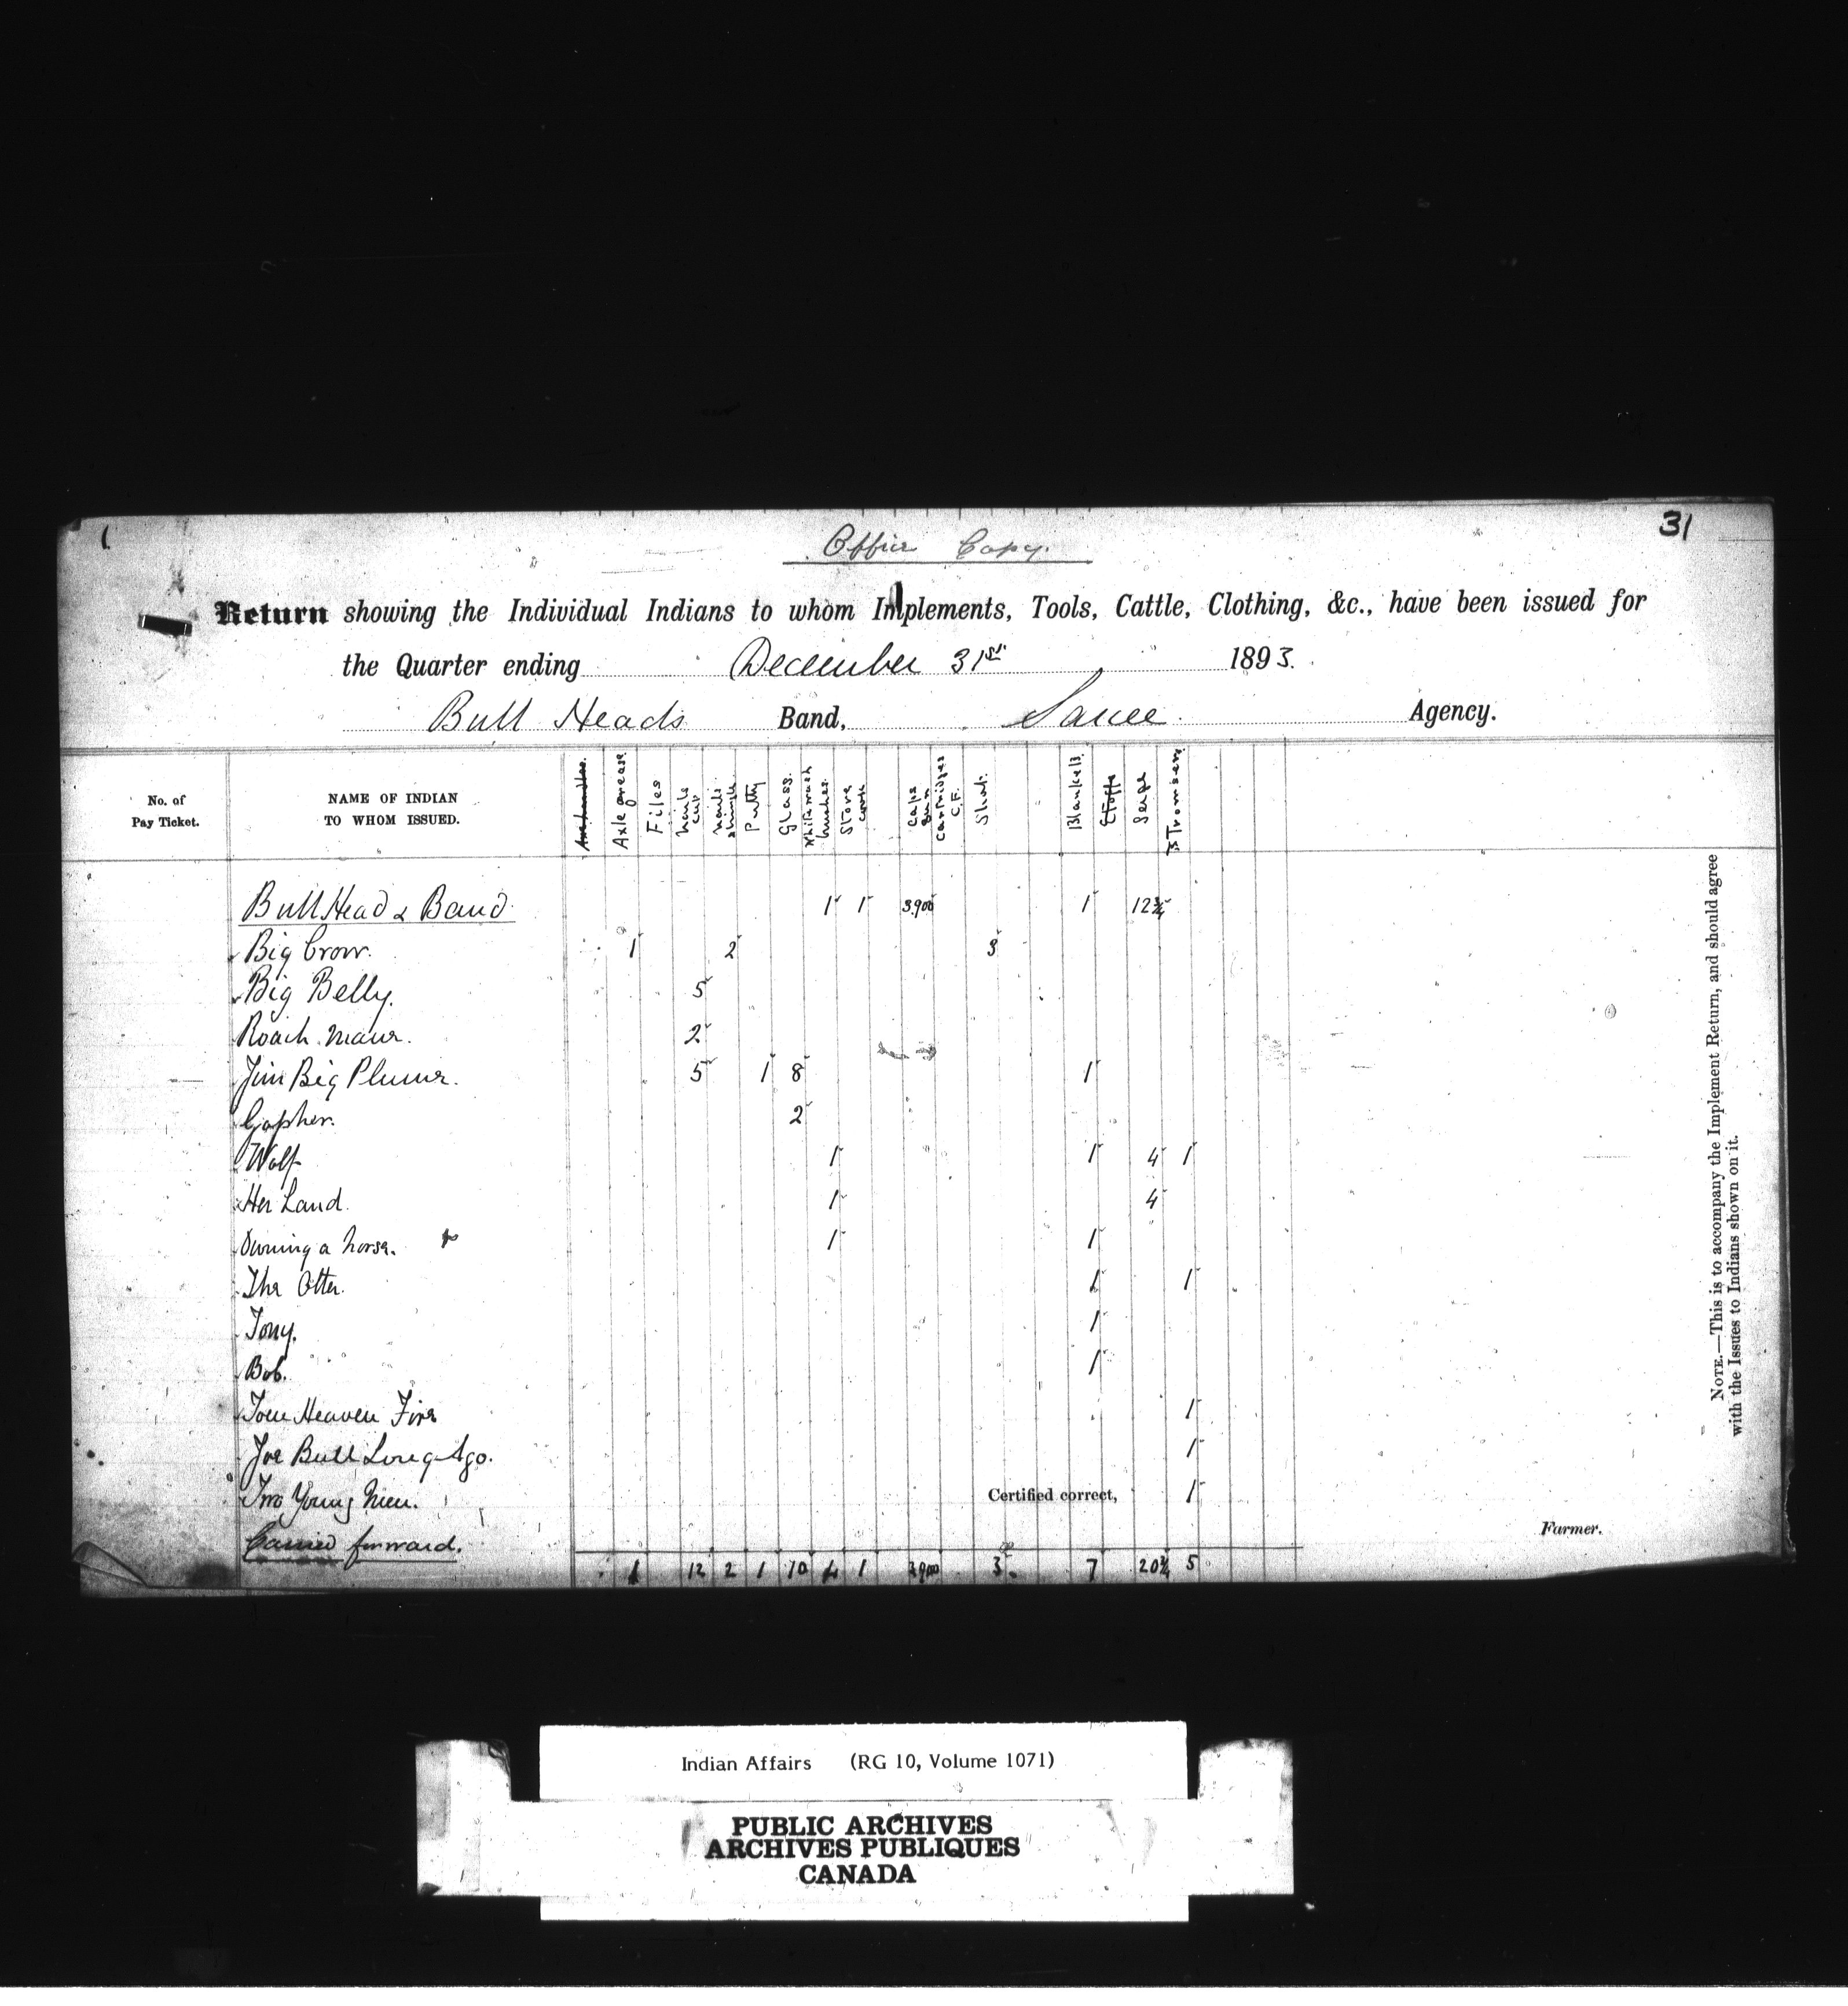 1
31
Office Copy.
Return showing the Individual Indians to whom Implements, Tools, Cattle, Clothing, &c., have been issued for
the Quarter ending December 31st 1893.
Bull Heads Band, Sarcee Agency.
No. of
Pay Ticket.
NAME OF INDIAN
TO WHOM ISSUED.
Axe handles.
Axle grease
Files
Nails cut
Nails shingle
Putty
Glass.
Whitewash brushes.
Stove
Caps Gun
Cartridges C.F.
Shot.
Blankets
Stoffs
Serge
Trousers
Bull Head & Band. 1 1 3900 1 12¾
Big Crow. 1 2 3
Big Belly. 5
Roach Mane. 2
Jim Big Plume. 5 1 8 1
Gopher. 2
Wolf 1 1 4 1
Her Land. 1 4
Owning a horse. 1 1
The Otter. 1 1
Tony. 1
Bob. 1
Tom Heaven Fire 1
Joe Bull Long Ago. 1
Two Young Men. 1
Certified correct,
Farmer.
Carried forward.
1 12 2 1 10 4 1 3900 3 7 20¾ 5
NOTE.—This is to accompany the Implement Return, and should agree
with the Issues to Indians shown on it.
Indian Affairs (RG 10, Volume 1071)
PUBLIC ARCHIVES
ARCHIVES PUBLIQUES
CANADA